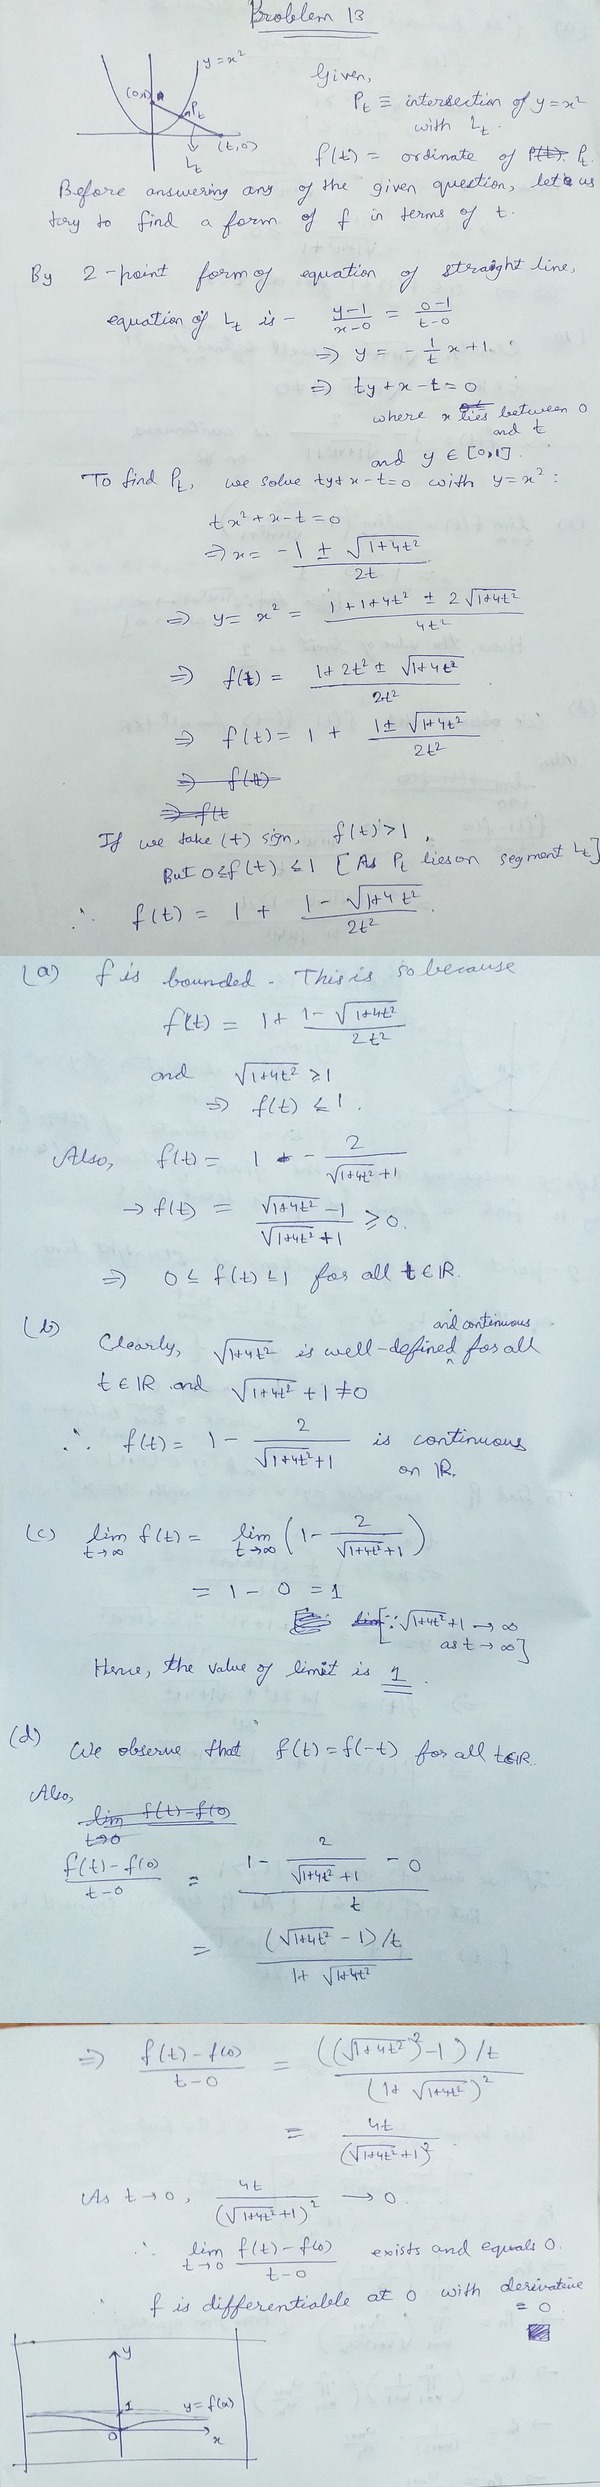 Problem 13
y=x²
(0,1)
P_t
(t,0)
L_t
Given,
P_t ≡ intersection of y=x²
with L_t.
f(t) = ordinate of P_t.
Before answering any of the given question, let us
try to find a form of f in terms of t.
By 2-point form of equation of straight line,
equation of L_t is - (y-1)/(x-0) = (0-1)/(t-0)
⇒ y = -(1/t)x+1.
⇒ ty+x-t=0
where x lies between 0
and t
and y ∈ [0,1].
To find P_t, we solve ty+x-t=0 with y=x²:
tx²+x-t=0
⇒ x = (-1 ± √(1+4t²))/(2t)
⇒ y = x² = (1+1+4t² ± 2√(1+4t²))/(4t²)
⇒ f(t) = (1+2t² ± √(1+4t²))/(2t²)
⇒ f(t) = 1 + (1±√(1+4t²))/(2t²)
⇒ f(t)
⇒ f(t
If we take (+) sign, f(t)>1,
But 0≤f(t)≤1 [As P_t lies on segment L_t]
∴ f(t) = 1 + (1-√(1+4t²))/(2t²).
(a) f is bounded. This is so because
f(t) = 1+ (1-√(1+4t²))/(2t²)
and √(1+4t²) ≥1
⇒ f(t) ≤1.
Also, f(t) = 1 - 2/(√(1+4t²)+1)
→ f(t) = (√(1+4t²)-1)/(√(1+4t²)+1) ≥0.
⇒ 0≤ f(t) ≤1 for all t∈ℝ.
(b) Clearly, √(1+4t²) is well-defined and continuous for all
t∈ℝ and √(1+4t²)+1≠0
∴ f(t) = 1- 2/(√(1+4t²)+1) is continuous
on ℝ.
(c) lim_{t→∞} f(t) = lim_{t→∞} (1- 2/(√(1+4t²)+1))
= 1-0 = 1
[∵ √(1+4t²)+1 → ∞
as t→∞]
Hence, the value of limit is 1.
(d) We observe that f(t)=f(-t) for all t∈ℝ.
Also,
lim_{t→0} f(t)-f(0)
(f(t)-f(0))/(t-0) = (1- 2/(√(1+4t²)+1) -0)/t
= ((√(1+4t²)-1)/t)/(1+√(1+4t²))
⇒ (f(t)-f(0))/(t-0) = (((√(1+4t²))²-1)/t)/(1+√(1+4t²))²
= 4t/(√(1+4t²)+1)²
As t→0, 4t/(√(1+4t²)+1)² → 0.
∴ lim_{t→0} (f(t)-f(0))/(t-0) exists and equals 0.
∴ f is differentiable at 0 with derivative
= 0.
y
1
y=f(x)
0
x